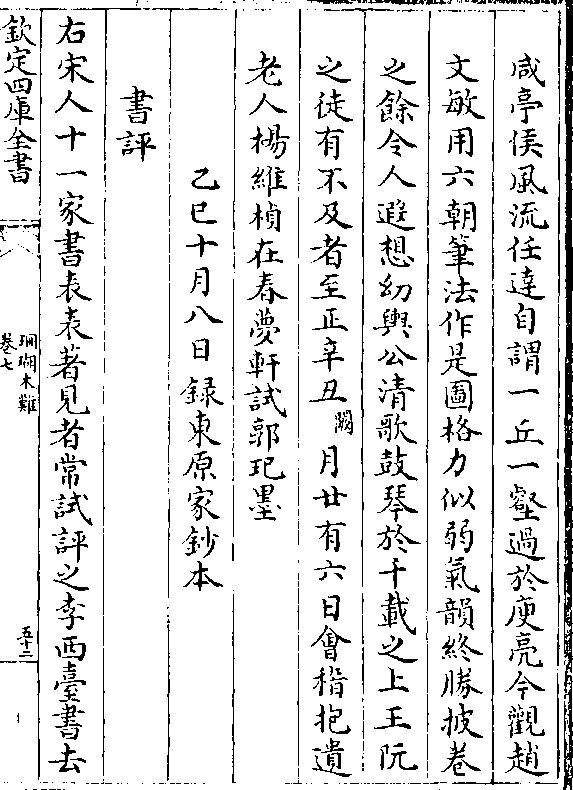 咸亭侯風流任達自謂一丘一壑過於庾亮今觀趙
文敏用六朝筆法作是圖格力似弱氣韻終勝披卷
之餘令人遐想幼輿公清歌鼓琴於千載之上王阮
之徒有不及者至正辛丑闕月廿有六日會稽抱遺
老人楊維楨在春夢軒試郭玘墨
乙巳十月八日録東原家鈔本
書評
右宋人十一家書表表著見者常試評之李西臺書去
欽定四庫全書
珊瑚木難
卷七
五十二